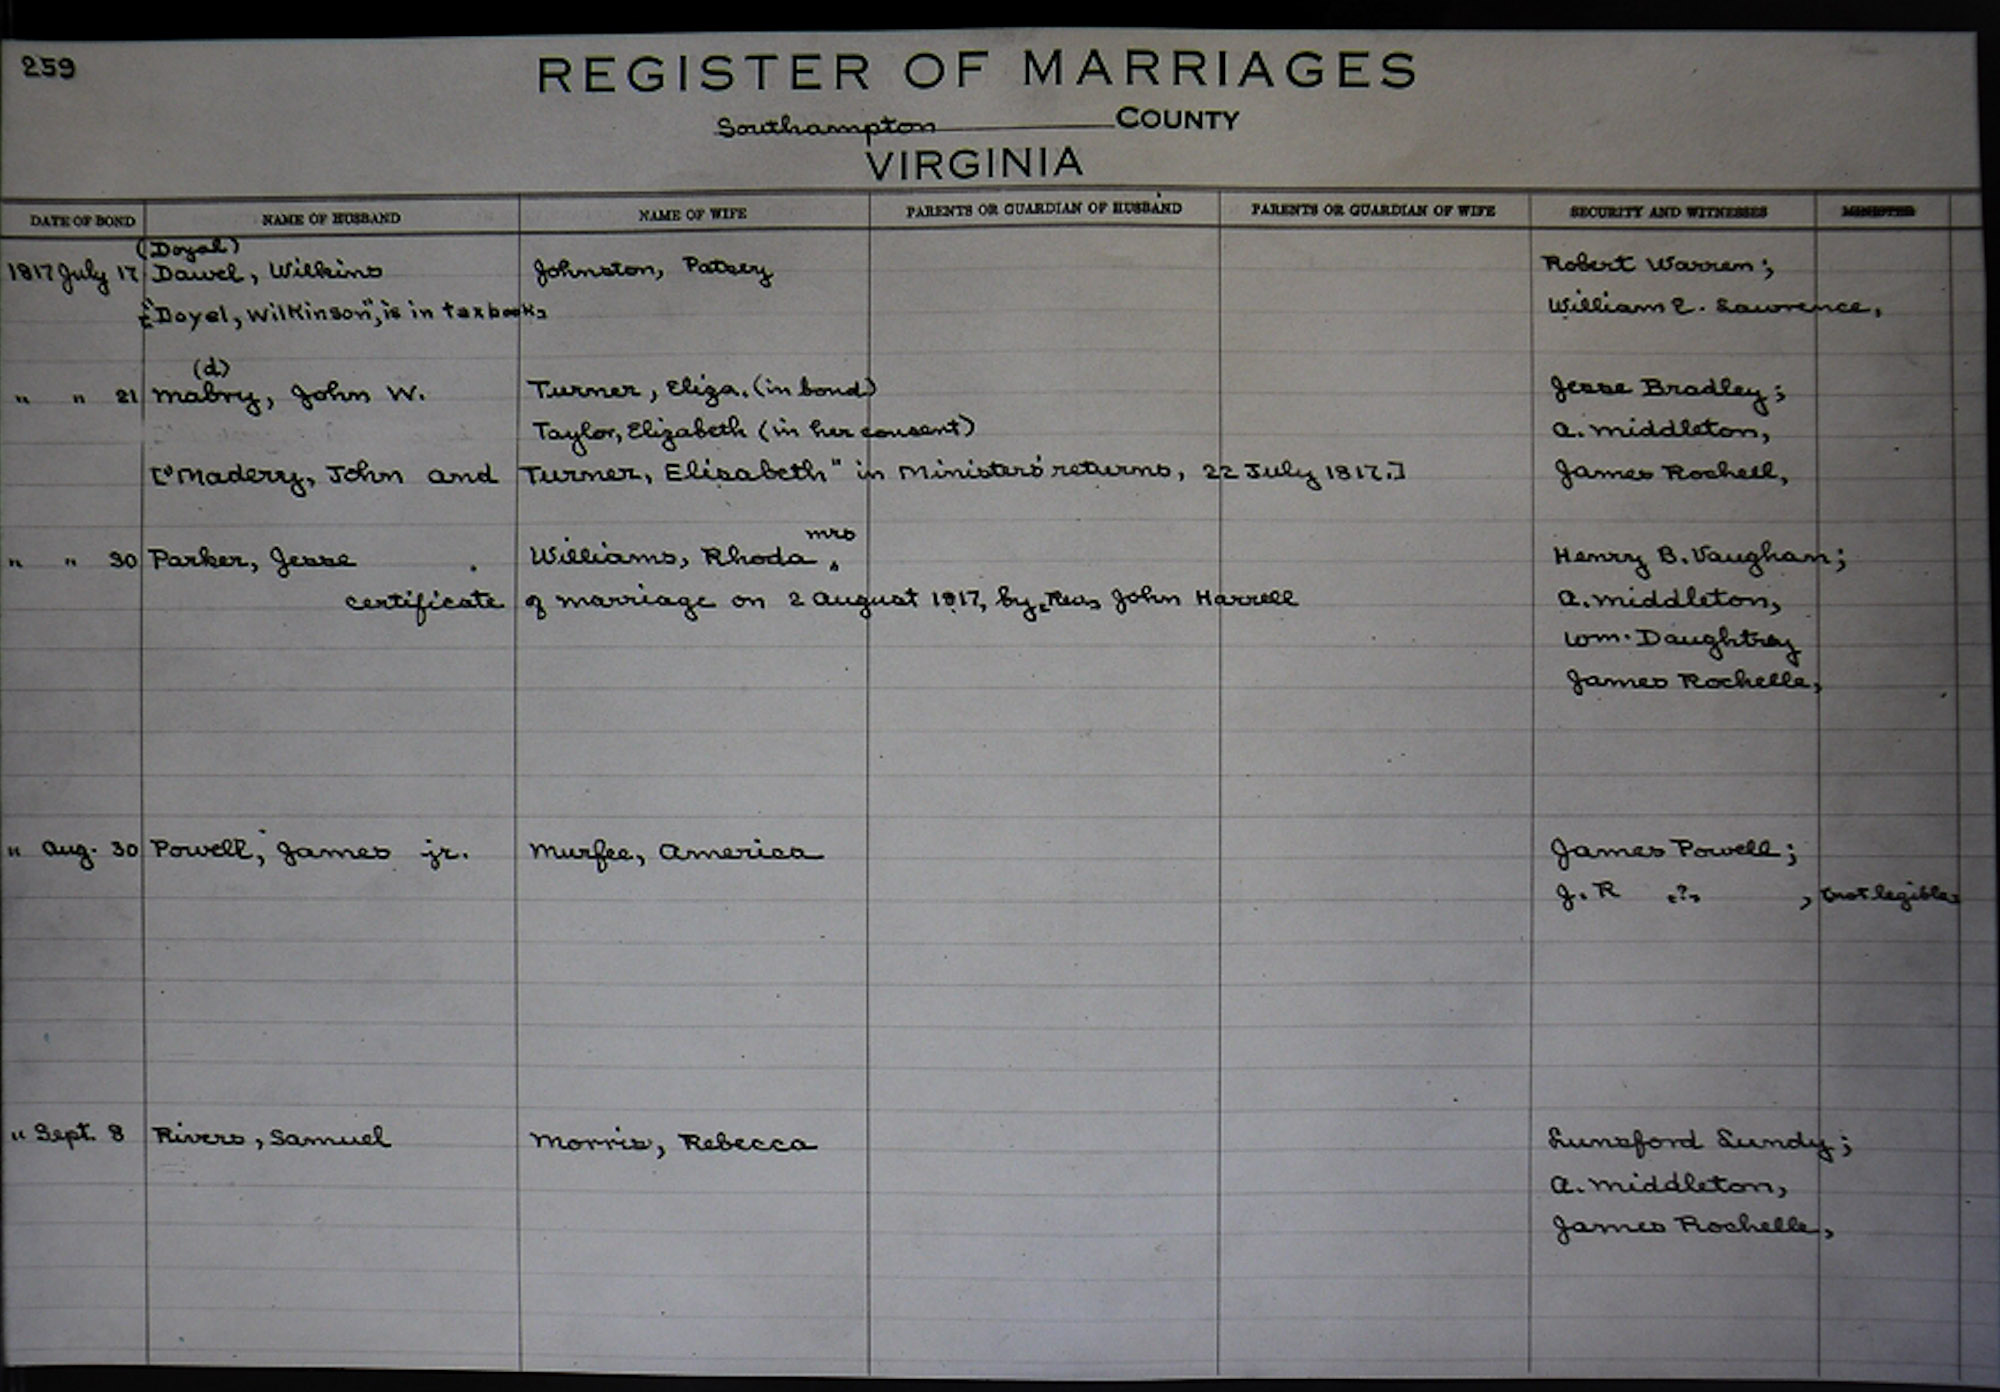 259
REGISTER OF MARRIAGES
Southampton COUNTY
VIRGINIA
DATE OF BOND NAME OF HUSBAND NAME OF WIFE PARENTS OR GUARDIAN OF HUSBAND PARENTS OR GUARDIAN OF WIFE SECURITY AND WITNESSES MINISTER
(Doyal)
1817 July 17 Dawel, Wilkins Johnston, Patsey Robert Warren;
["Doyel, Wilkinson", is in tax books William E. Lawrence,
(d)
" " 21 Mabry, John W. Turner, Eliza. (in bond) Jesse Bradley;
Taylor, Elizabeth (in her consent) A. Middleton,
["Maderry, John and Turner, Elisabeth" in Ministers' returns, 22 July 1817.] James Rochell,
mrs
" " 30 Parker, Jesse Williams, Rhoda, Henry B. Vaughan;
certificate of marriage on 2 August 1817, by [Rev] John Harrell A. Middleton,
Wm. Daughtrey
James Rochelle,
" Aug. 30 Powell, James jr. Murfee, America James Powell;
J. R [?] , [not legible]
" Sept. 8 Rivers, Samuel Morris, Rebecca Lunsford Lundy;
A. Middleton,
James Rochelle,